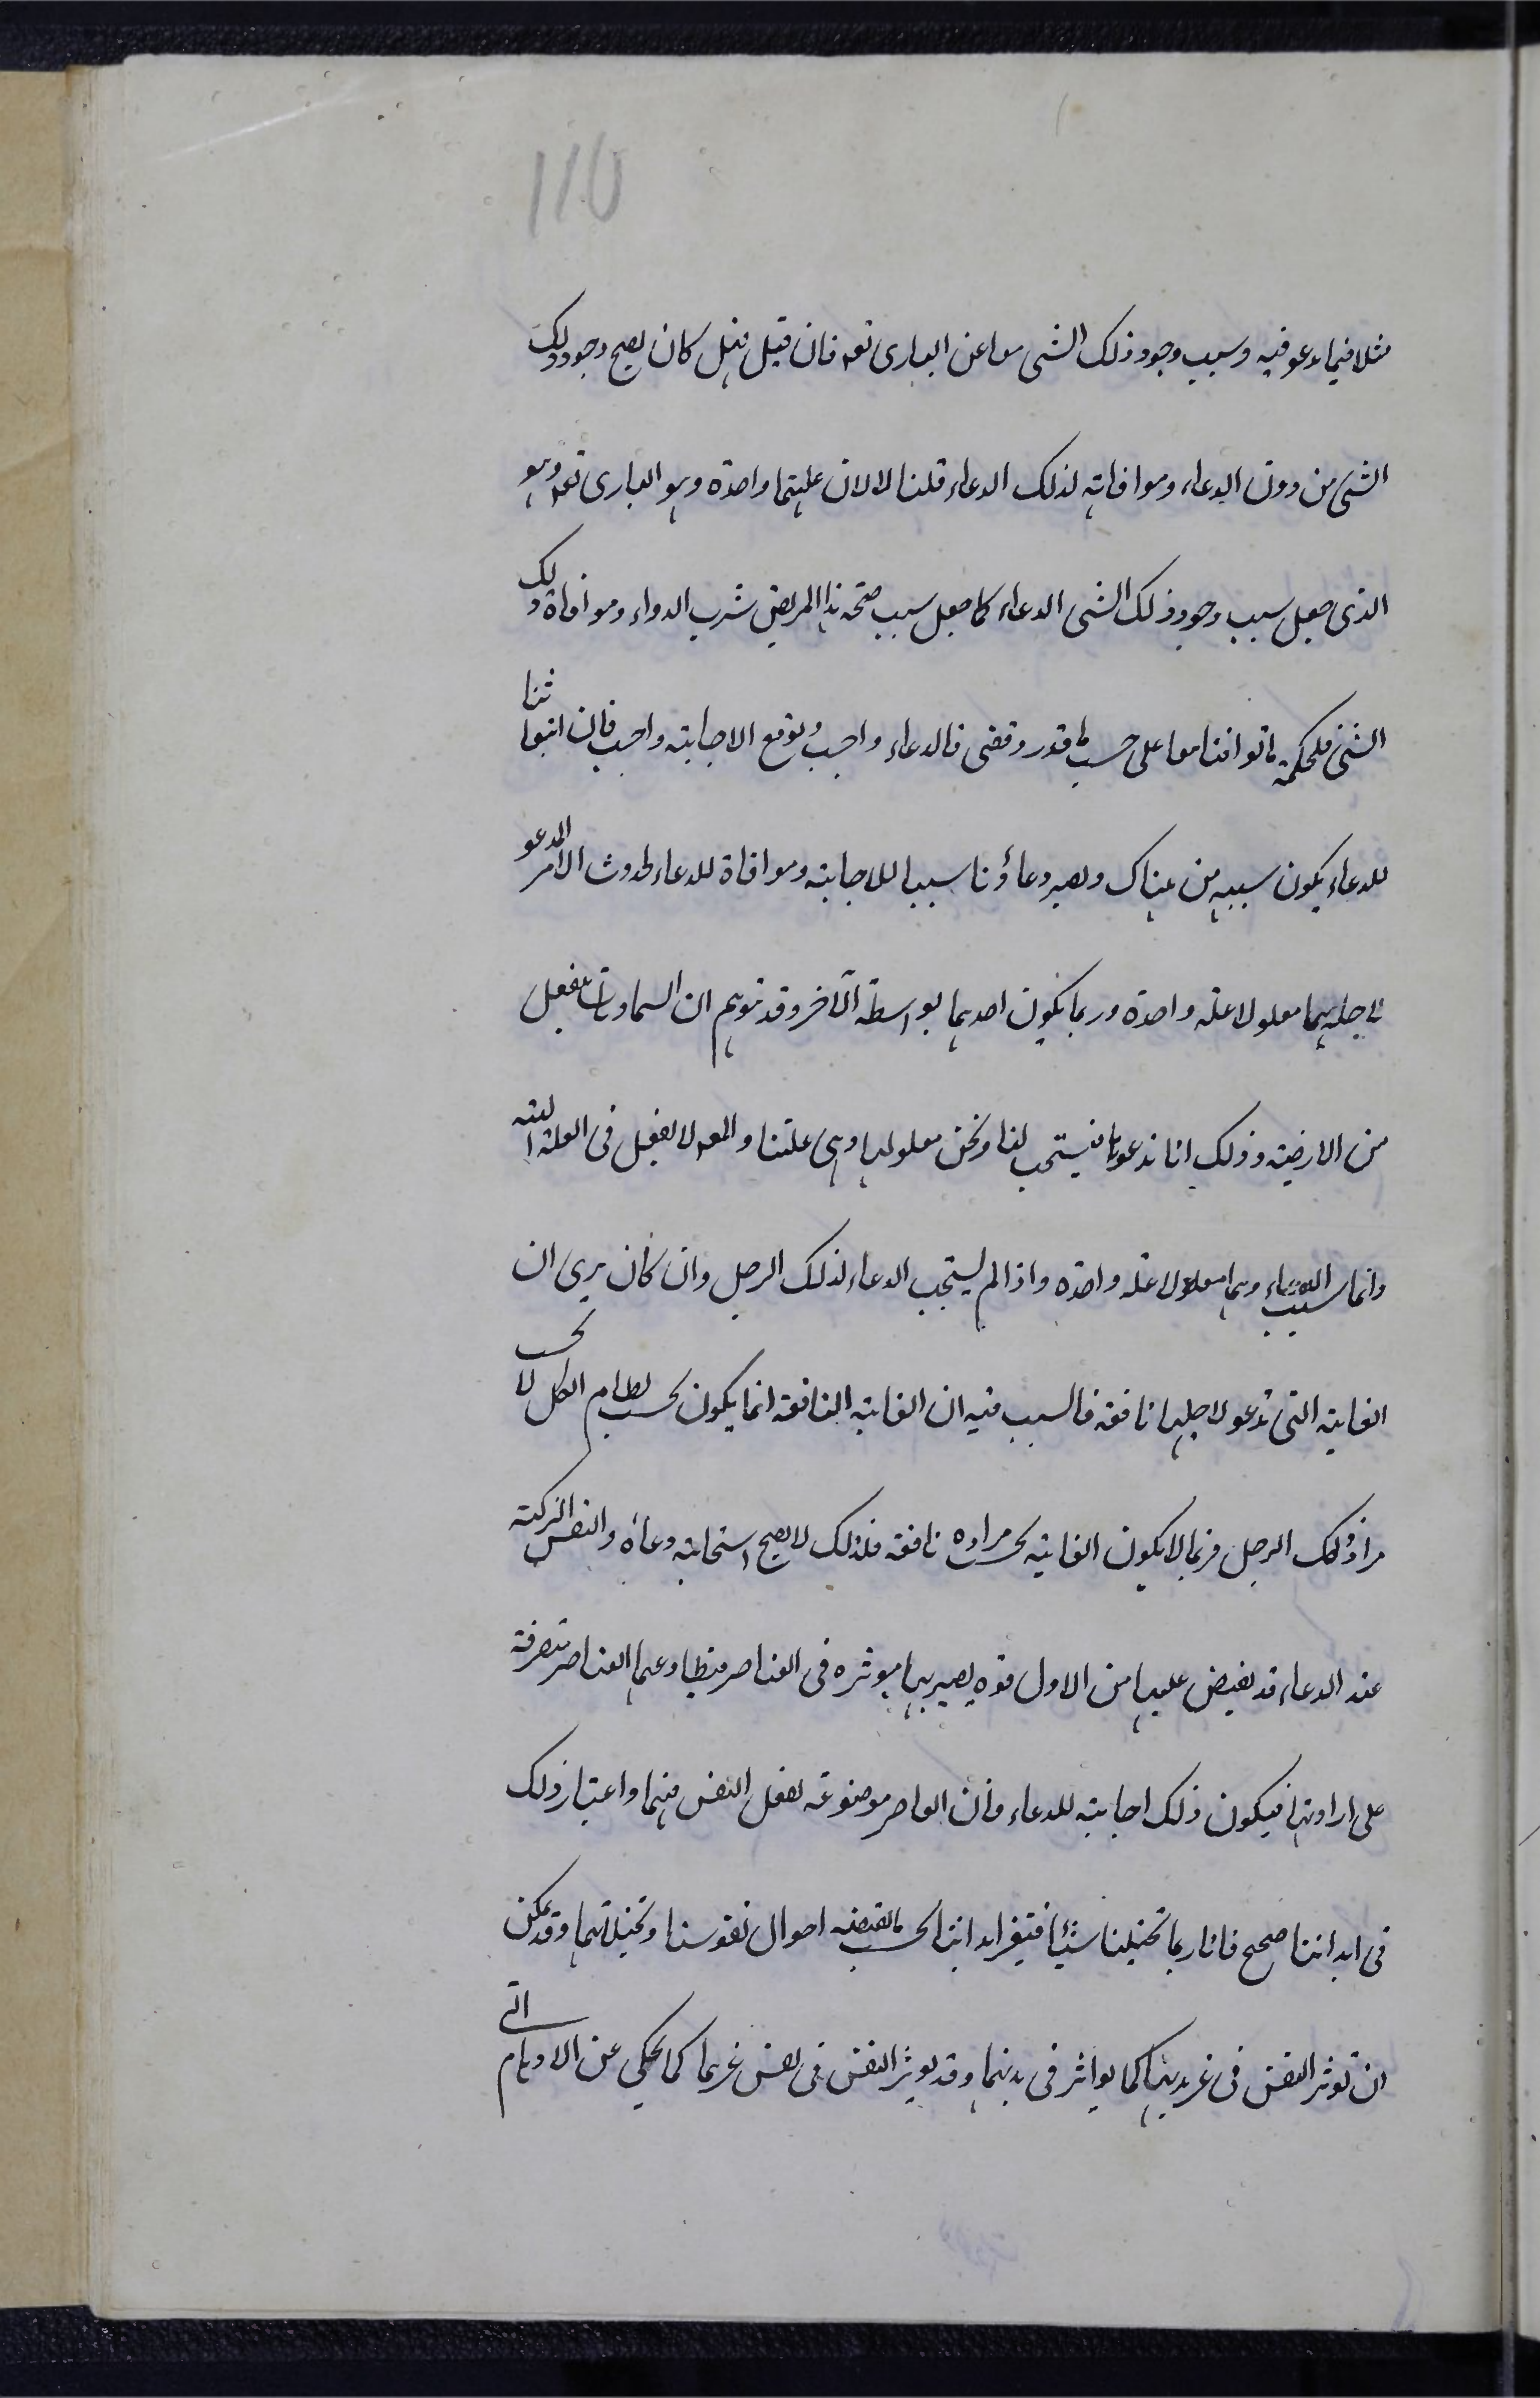 110
مثلا فيما يدعو فيه وسبب وجود ذلك الشى معا عن البارى تعہ فان قيل فهل كان يصح وجود ذلك
الشى من دون الدعاء وموافاته لذلك الدعاء قلنا لا لان علتهما واحدة وهو البارى تعہ وهو
الذى جعل سبب وجود ذلك الشى الدعاء كما جعل سبب صحة هذا المريض شرب الدواء وموافاة ذلك
الشى فلحكمة ما توافتا معا على حسب ما قدر وقضى فالدعاء واجب وتوقع الاجابة واجب فان انبعاثنا
للدعاء يكون سببه من هناك ويصير دعاؤنا سببا للاجابة وموافاة للدعاء لحدوث الامر المدعو
لاجله هما معلولا علة واحدة وربما يكون احدهما بواسطة الآخر وقد توهم ان السماويات ينفعل
من الارضية وذلك انا ندعوها فيستجيب لنا ونحن معلولها وهى علتنا والمعہ لا يفعل فى العلة البتة
وانما سبب الدعاء وهما معلولا علة واحدة واذا لم يستجب الدعاء لذلك الرجل وان كان يرى ان
الغاية التى تدعو لاجلها نافعة فالسبب فيه ان الغاية النافعة انما يكون بحسب نظام الكل لا بحسب
مراد ذلك الرجل فربما لا يكون الغاية بحسب مراده نافعة فلذلك لا يصح استجابة دعاه والنفس الزكية
عند الدعاء قد يفيض عليها من الاول قوه يصير بها موثره فى العناصر فيطاوعها العناصر متصرفة
على ارادتها فيكون ذلك اجابة للدعاء فان العناصر موضوعة لفعل النفس فيها واعتبار ذلك
فى ابداننا صحيح فانا ربما تخيلنا شيئا فتغير ابداننا بحسب ما يقتضيه احوال نفوسنا وتخيلاتها وقد يمكن
ان توثر النفس فى غير بدنها كما يواثر فى بدنها وقد يوثر النفس فى نفس غيرها كما يحكى عن الاوهام التى